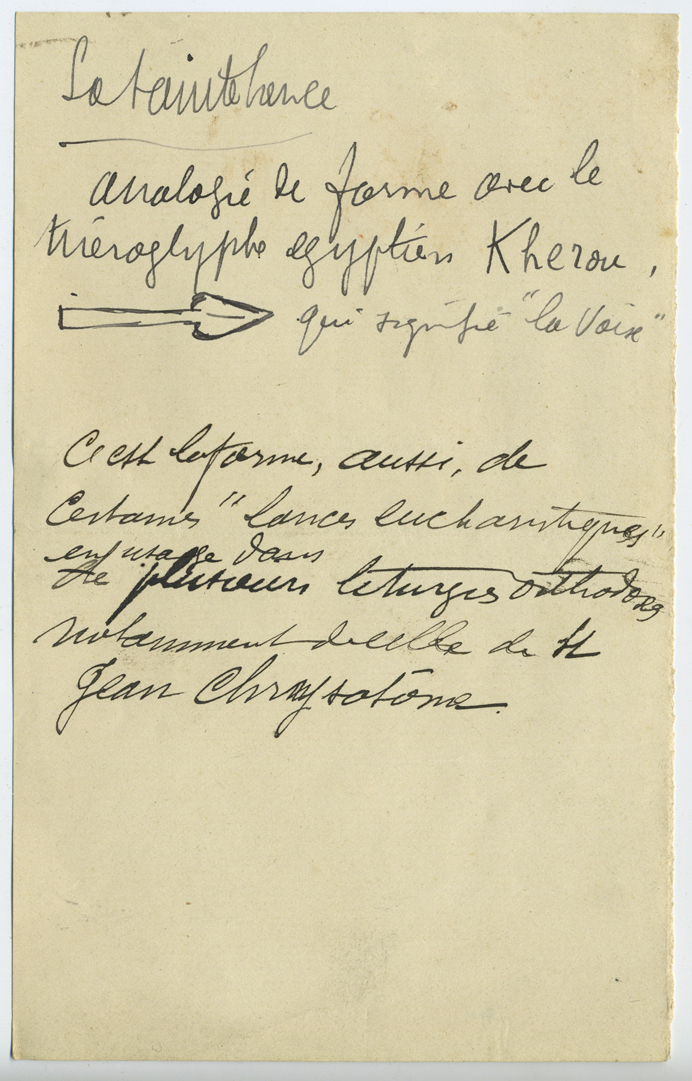 La Sainte Lance
analogie de forme avec le
hiéroglyphe egyptien Kherou,
qui signifie "la Voix"
C'est la forme, aussi, de
Certaines "lances eucharistiques"
en usage dans
de plusieurs liturgies orthodoxes
notamment de celle de St
Jean Chrysostome.